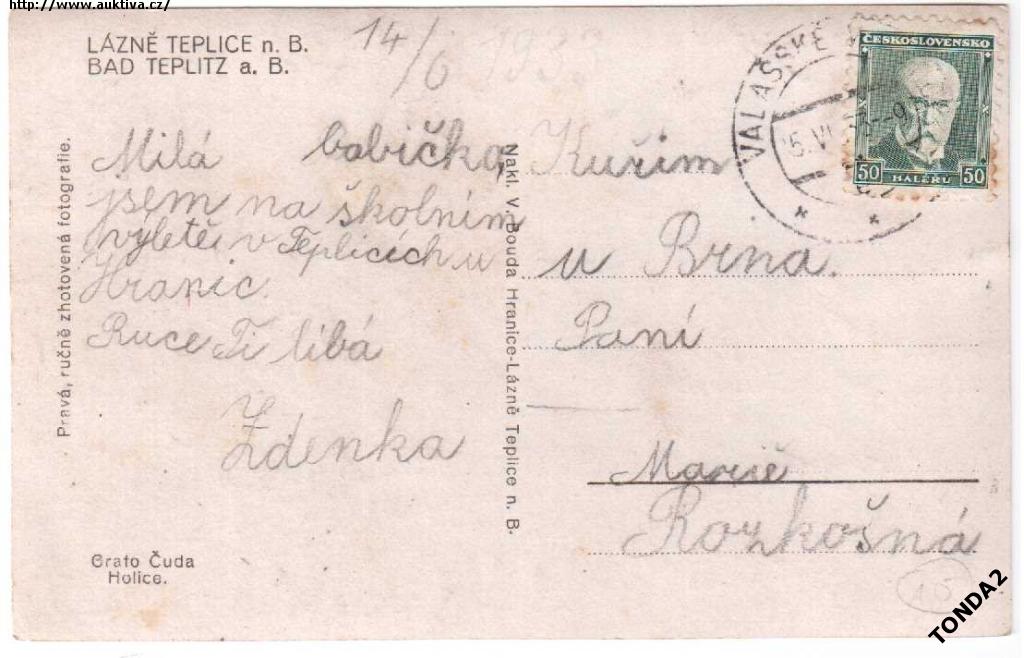 http://www.auktiva.cz/
LÁZNĚ TEPLICE n. B.
BAD TEPLITZ a. B.
14/6 1933
Milá babičko,
jsem na školním
výletě v Teplicích u
Hranic.
Ruce Ti líbá
Zdenka
Grafo Čuda
Holice.
Pravá, ručně zhotovená fotografie.
Nakl. V. Bouda Hranice-Lázně Teplice n. B.
VALAŠSKÉ
15. VI.
ČESKOSLOVENSKO
50 HALÉŘŮ 50
Kuřim
u Brna.
Paní
Marie
Rozkošná
15
TONDA2